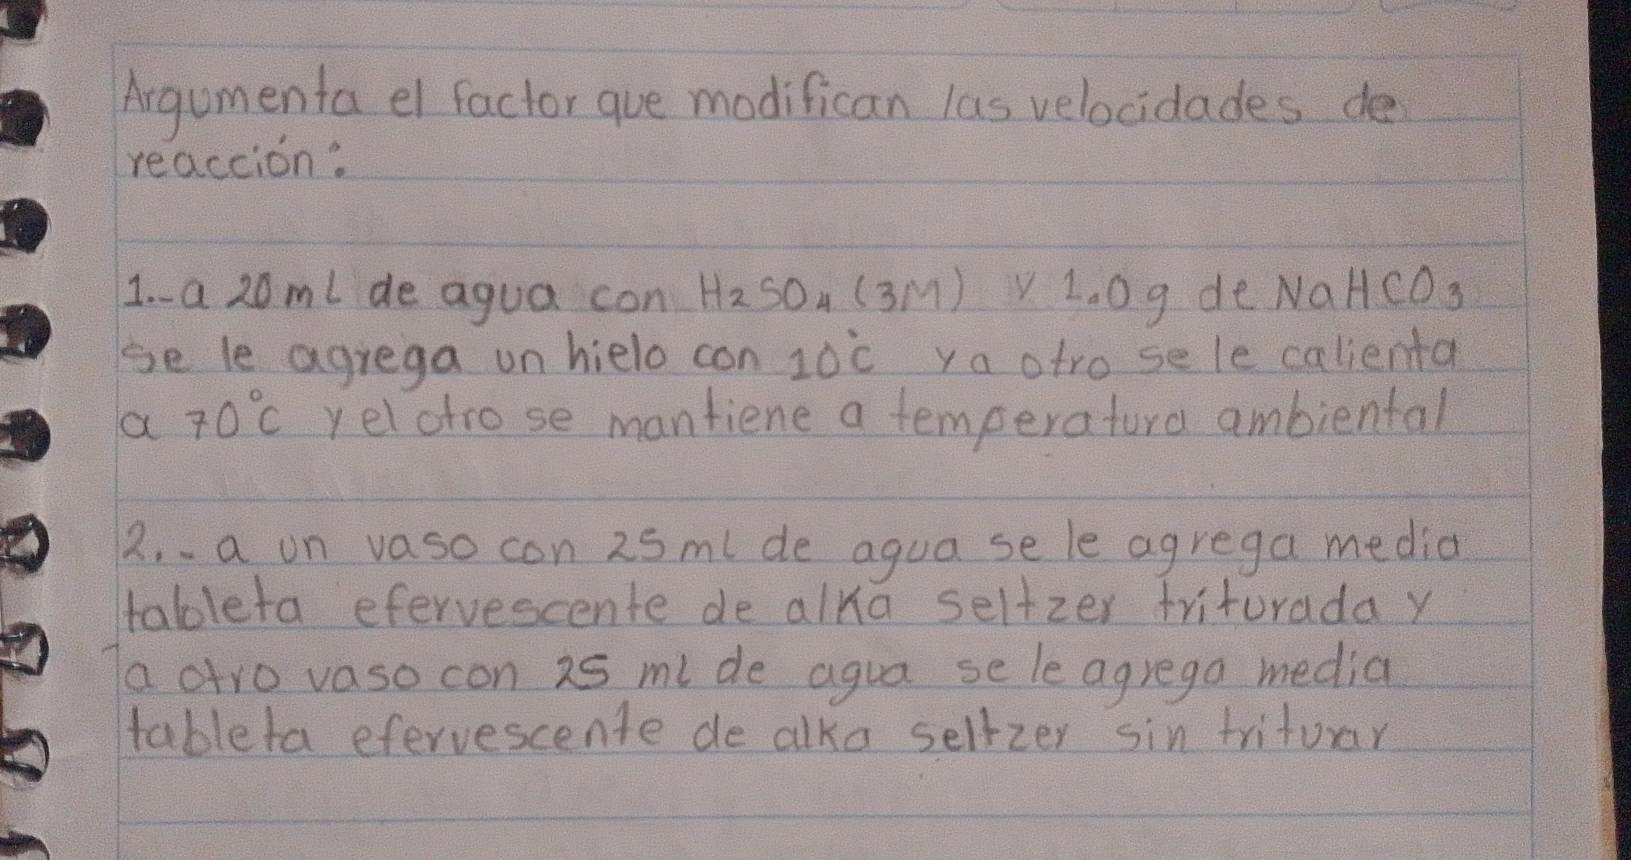 Argumenta el factor que modifican las velocidades de
reacción:
1.-a 20 ml de agua con H2SO4 (3M) y 1.0g de NaHCO3
se le agrega un hielo con 10°c y a otro se le calienta
a 70°c y el otro se mantiene a temperatura ambiental
2.- a un vaso con 25 ml de agua se le agrega media
tableta efervescente de alka seltzer triturada y
a otro vaso con 25 ml de agua se le agrega media
tableta efervescente de alka seltzer sin triturar